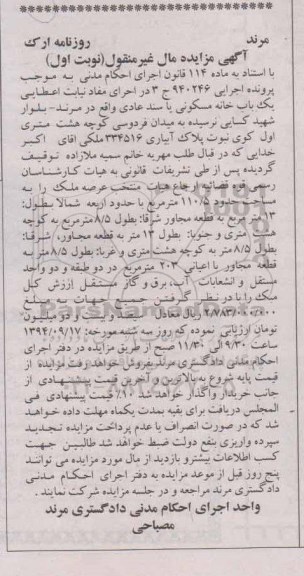 مرند روزنامه ارک
آگهی مزایده مال غیرمنقول(نوبت اول)
با استناد به ماده ۱۱۴ قانون اجرای احکام مدنی به موجب
پرونده اجرایی ۹۴۰۲۴۶ ج ۳ در اجرای مفاد نیابت اعطایی
یک باب خانه مسکونی با سند عادی واقع در مرند- بلوار
شهید کسایی نرسیده به میدان فردوسی کوچه هشت متری
اول کوی نبوت پلاک آبیاری ۳۳۴۵۱۶ ملکی اقای اکبر
خدایی که در قبال طلب مهریه خانم سمیه ملازاده توقیف
گردیده پس از طی تشریفات قانونی به هیات کارشناسان
رسمی قوه قضائیه ارجاع هیات منتخب عرصه ملک را به
مساحت حدود ۱۱۰/۵ مترمربع با حدود اربعه شمالا بطول:
۱۳ متر مربع به قطعه مجاور شرقا: بطول ۸/۵ مترمربع به کوچه
هشت متری و جنوبا: بطول ۱۳ متر به قطعه مجاور، شرقا:
بطول ۸/۵ متر به کوچه هشت متری و غربا: بطول ۸/۵ متر به
قطعه مجاور با اعیانی ۲۰۳ مترمربع در دو طبقه و دو واحد
مستقل و انشعابات آب، برق و گاز مستقل ارزش کل
ملک را با در نظر گرفتن جمیع جهات به مبلغ
ریال معادل میلیون
تومان ارزیابی نموده که روز سه شنبه مورخه: ۱۳۹۴/۰۹/۱۷
ساعت ۹/۳۰ الی ۱۱/۳۰ صبح از طریق مزایده در دفتر اجرای
احکام مدنی دادگستری مرند بفروش خواهد رفت مزایده از
قیمت پایه شروع به بالاترین و آخرین قیمت پیشنهادی از
جانب خریدار واگذار خواهد شد ۱۰٪ قیمت پیشنهادی فی
المجلس دریافت برای بقیه بمدت یکماه مهلت داده خواهد
شد که در صورت انصراف یا عدم پرداخت مزایده تجدید
سپرده واریزی بنفع دولت ضبط خواهد شد طالبین جهت
کسب اطلاعات بیشتر و بازدید از مال مورد مزایده می توانند
پنج روز قبل از موعد مزایده به دفتر اجرای احکام مدنی
دادگستری مرند مراجعه و در جلسه مزایده شرکت نمایند.
واحد اجرای احکام مدنی دادگستری مرند
مصباحی